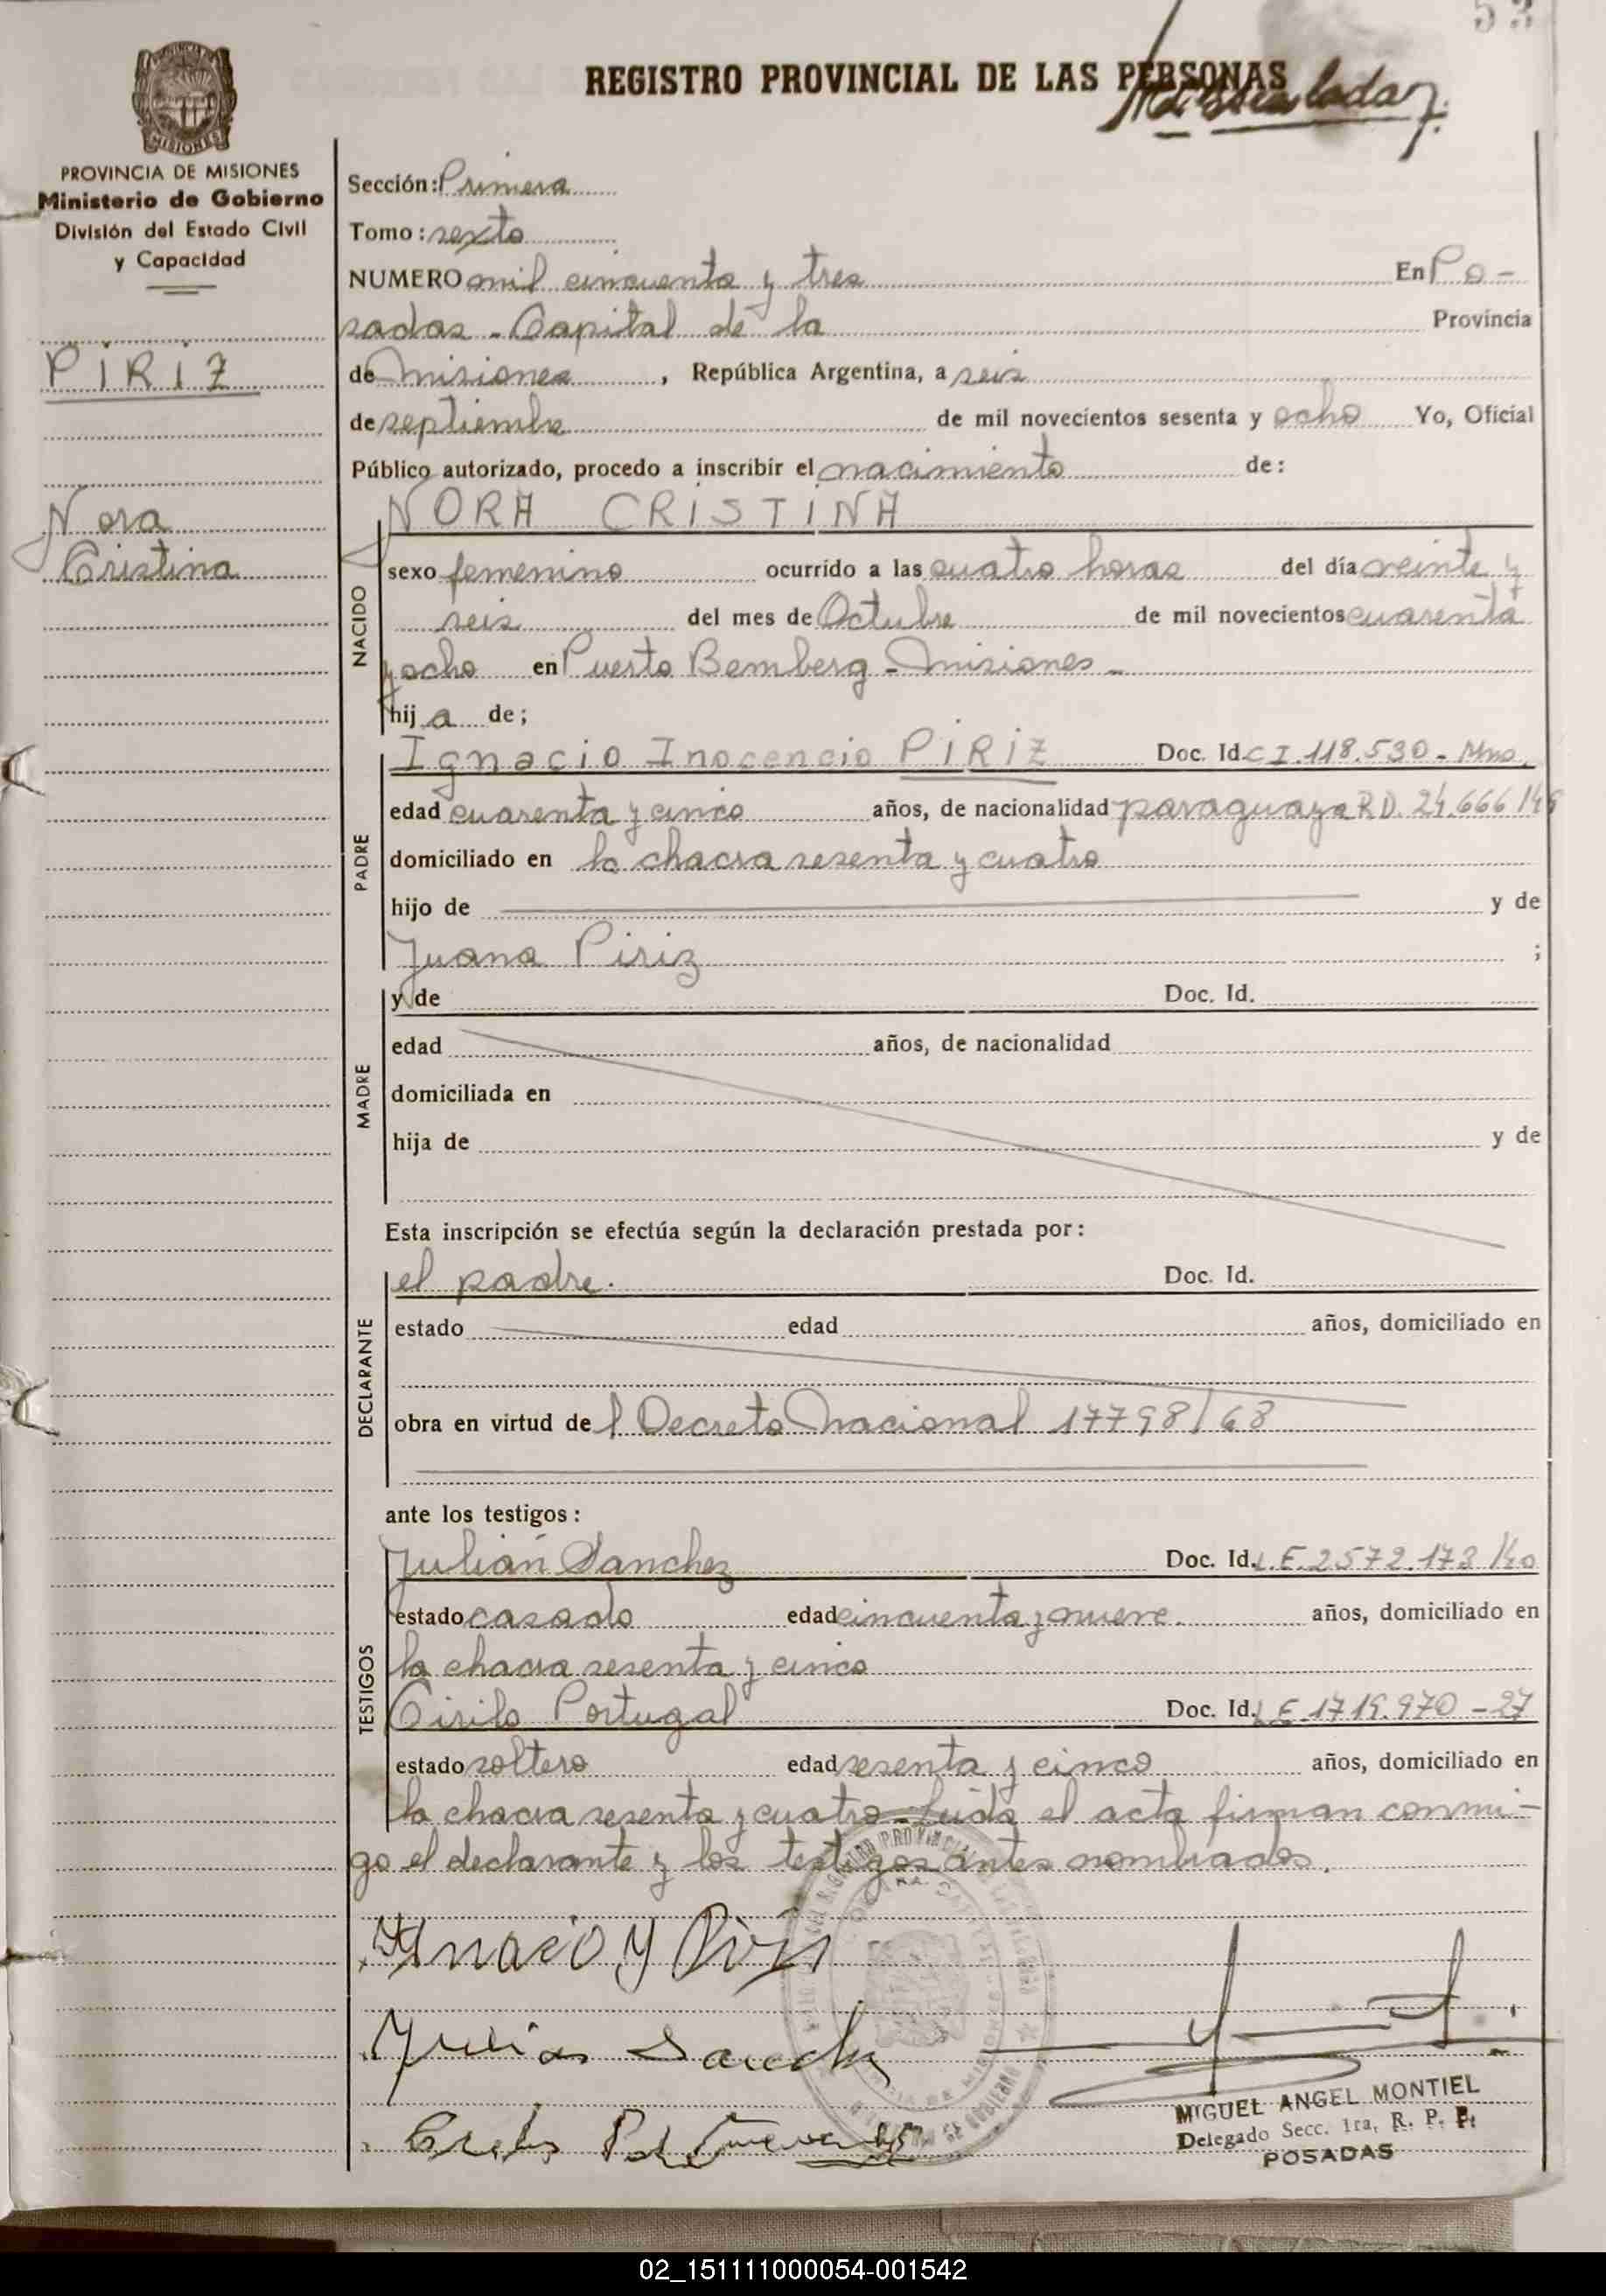 53
REGISTRO PROVINCIAL DE LAS PERSONAS
PROVINCIA DE MISIONES
Ministerio de Gobierno
División del Estado Civil
y Capacidad
PIRIZ
Nora
Cristina
Sección: Primera
Tomo: sexto
NUMERO mil cincuenta y tres En Po-
sadas - Capital de la Provincia
de Misiones, República Argentina, a seis
de septiembre de mil novecientos sesenta y ocho Yo, Oficial
Público autorizado, procedo a inscribir el nacimiento de:
NORA CRISTINA
NACIDO
sexo femenino ocurrido a las cuatro horas del día veinte y
seis del mes de Octubre de mil novecientos cuarenta
y ocho en Puerto Bemberg - Misiones -
hija de;
PADRE
Ignacio Inocencio PIRIZ Doc. Id. C I. 118.530 - Mnes.
edad cuarenta y cinco años, de nacionalidad paraguaya R D. 24.666/46
domiciliado en la chacra sesenta y cuatro
hijo de y de
Juana Piriz ;
MADRE
y de Doc. Id.
edad años, de nacionalidad
domiciliada en
hija de y de
Esta inscripción se efectúa según la declaración prestada por:
DECLARANTE
el padre. Doc. Id.
estado edad años, domiciliado en
obra en virtud del Decreto Nacional 17798/68
ante los testigos:
TESTIGOS
Julián Sanchez Doc. Id. L.E. 2572.173/40
estado casado edad cincuenta y nueve. años, domiciliado en
la chacra sesenta y cinco
Cirilo Portugal Doc. Id. L E. 1719.970 - 27
estado soltero edad sesenta y cinco años, domiciliado en
la chacra sesenta y cuatro - Leída el acta firman conmi-
go el declarante y los testigos antes nombrados.
Ignacio Y Piris
Julian Sanche
MIGUEL ANGEL MONTIEL
Delegado Secc. 1ra, R. P. P.
POSADAS
02_151111000054-001542